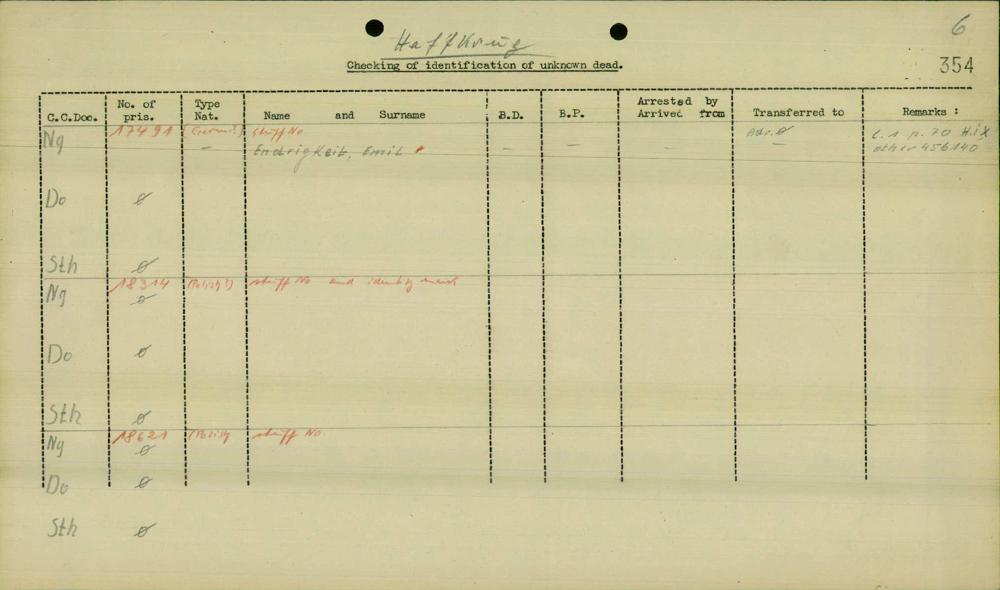 6
Haffkrug
Checking of identification of unknown dead.
354
C.C.Doc. No. of pris. Type Nat. Name and Surname B.D. B.P. Arrested by Arrived from Transferred to Remarks :
Ng 17491 stuff No
— Endrigkeit, Emil — — — — l. 1 p. 70 H.IX
other 456140
Do ø
Sth ø
Ng 18314 stuff No and identity mark
ø
Do ø
Sth ø
Ng 18621 (Polish stuff No.
ø
Do ø
Sth ø